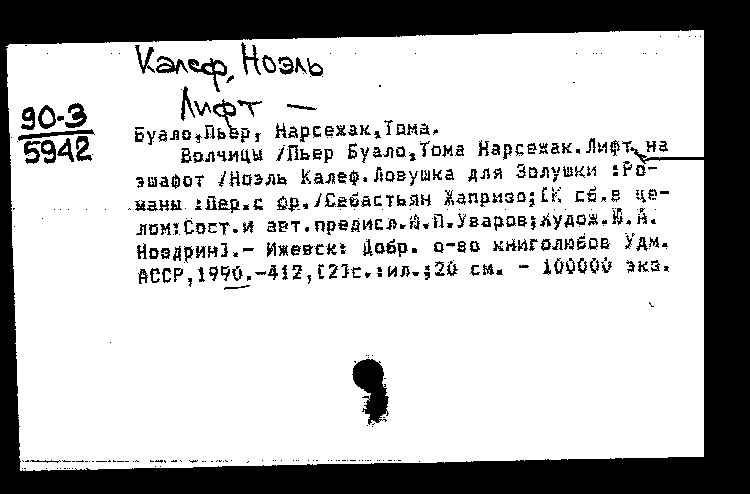 Калеф, Ноэль
Лифт —
90-3
5942
Буало,Пьер, Нарсежак,Тома.
Волчицы /Пьер Буало,Тома Нарсежак.Лифт на
эшафот /Ноэль Калеф.Ловушка для Золушки :Ро-
маны :Пер.с фр./Себастьян Жапризо;[К сб.в це-
лом:Сост.и авт.предисл.Ю.П.Уваров;Худож.Ю.А.
Ноздрин].- Ижевск: Добр. о-во книголюбов Удм.
АССР,1990.-412,[2]с.:ил.;20 см. - 100000 экз.